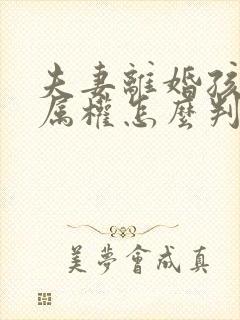 夫妻離婚孩
属權怎麼判
美夢會成真